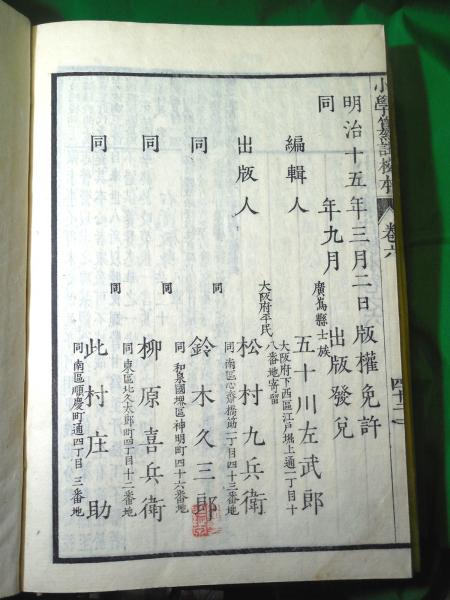 小學纂註校本 卷六 四十二
明治十五年三月二日版權免許
同 年九月 出版發兌
編輯人 廣島縣士族 五十川左武郎
大阪府下西區江戸堀上通一丁目十
八番地寄留
出版人 大阪府平民 松村九兵衛
同南區心齋橋筋一丁目四十三番地
同 同 鈴木久三郎
同和泉國堺區神明町四十六番地
同 同 柳原喜兵衛
同東區北久太郎町四丁目十二番地
同 同 此村庄助
同南區順慶町通四丁目三番地